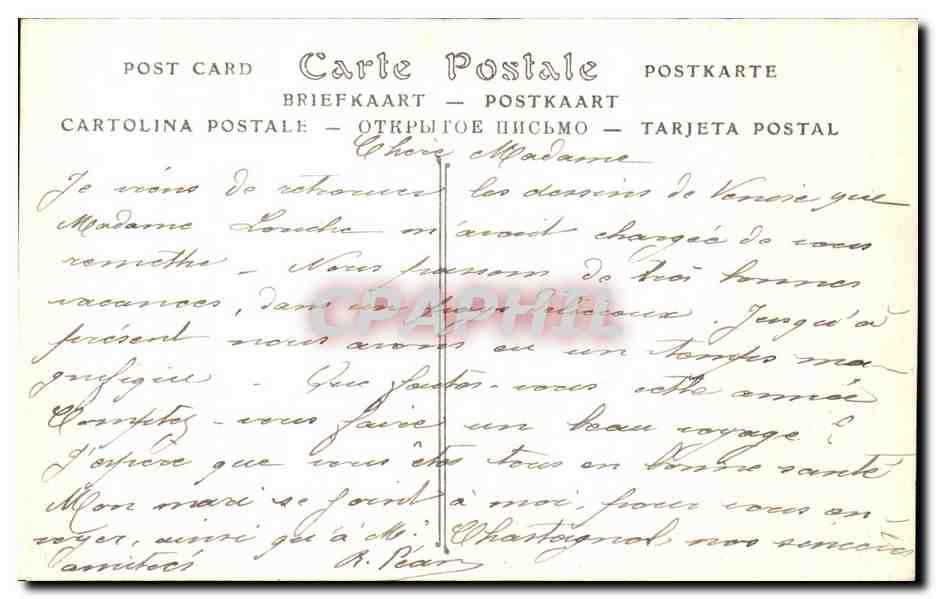 POST CARD Carte Postale POSTKARTE
BRIEFKAART — POSTKAART
CARTOLINA POSTALE — ОТКРЫТОЕ ПИСЬМО — TARJETA POSTAL
Chère Madame
Je viens de retrouver les dessins de Venise que
Madame Louche m'avait chargée de vous
remettre - Nous passons de très bonnes
vacances, dans un pays délicieux. Jusqu'à
présent nous avons eu un temps ma-
gnifique - Que faites-vous cette année
Comptez-vous faire un beau voyage ?
J'espère que vous êtes tous en bonne santé
Mon mari se joint à moi, pour vous en
voyer, ainsi qu'à Mr Chastagnol nos sincères
amitiés R. Péan
CPAPHIL